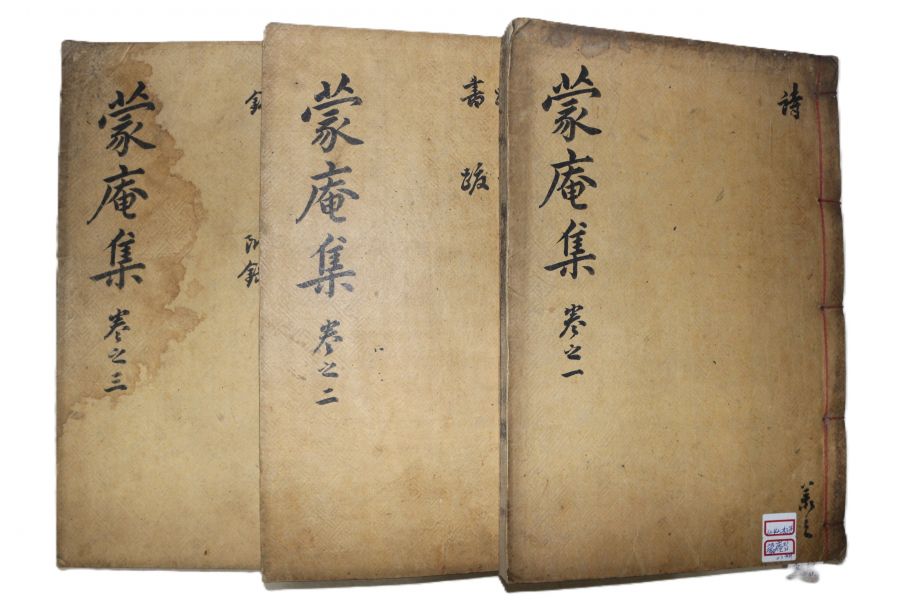 詩
蒙庵集 卷之一
書
跋
蒙庵集 卷之二
附錄
蒙庵集 卷之三